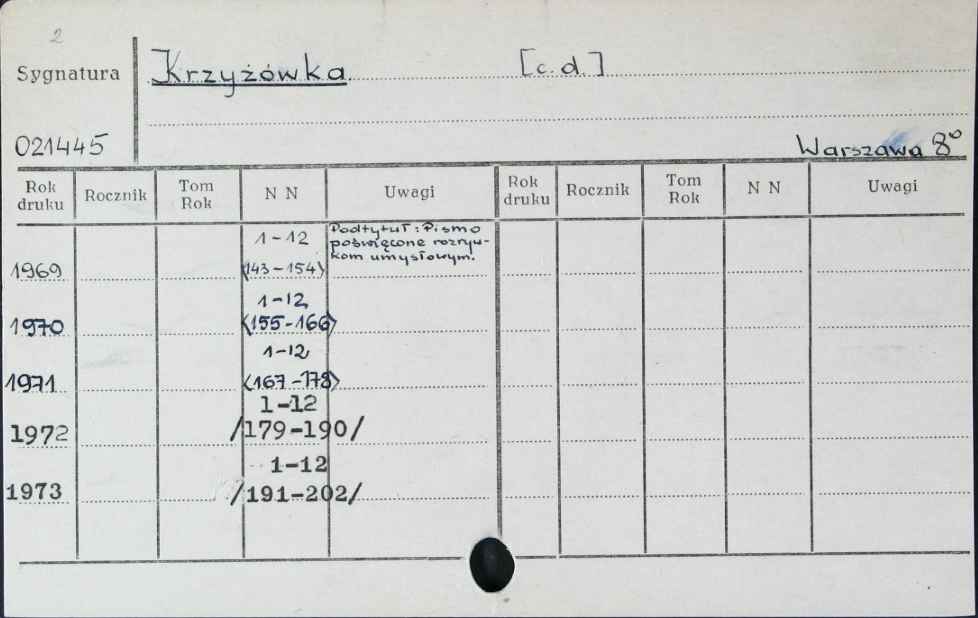 2
Sygnatura Krzyżówka [c.d.]
021445 Warszawa 8°
Rok druku Rocznik Tom Rok N N Uwagi Rok druku Rocznik Tom Rok N N Uwagi
1-12 Podtytuł: Pismo
poświęcone rozryw-
kom umysłowym.
1969 <143-154>
1-12
1970 <155-166>
1-12
1971 <167-178>
1-12
1972 /179-190/
1-12
1973 /191-202/